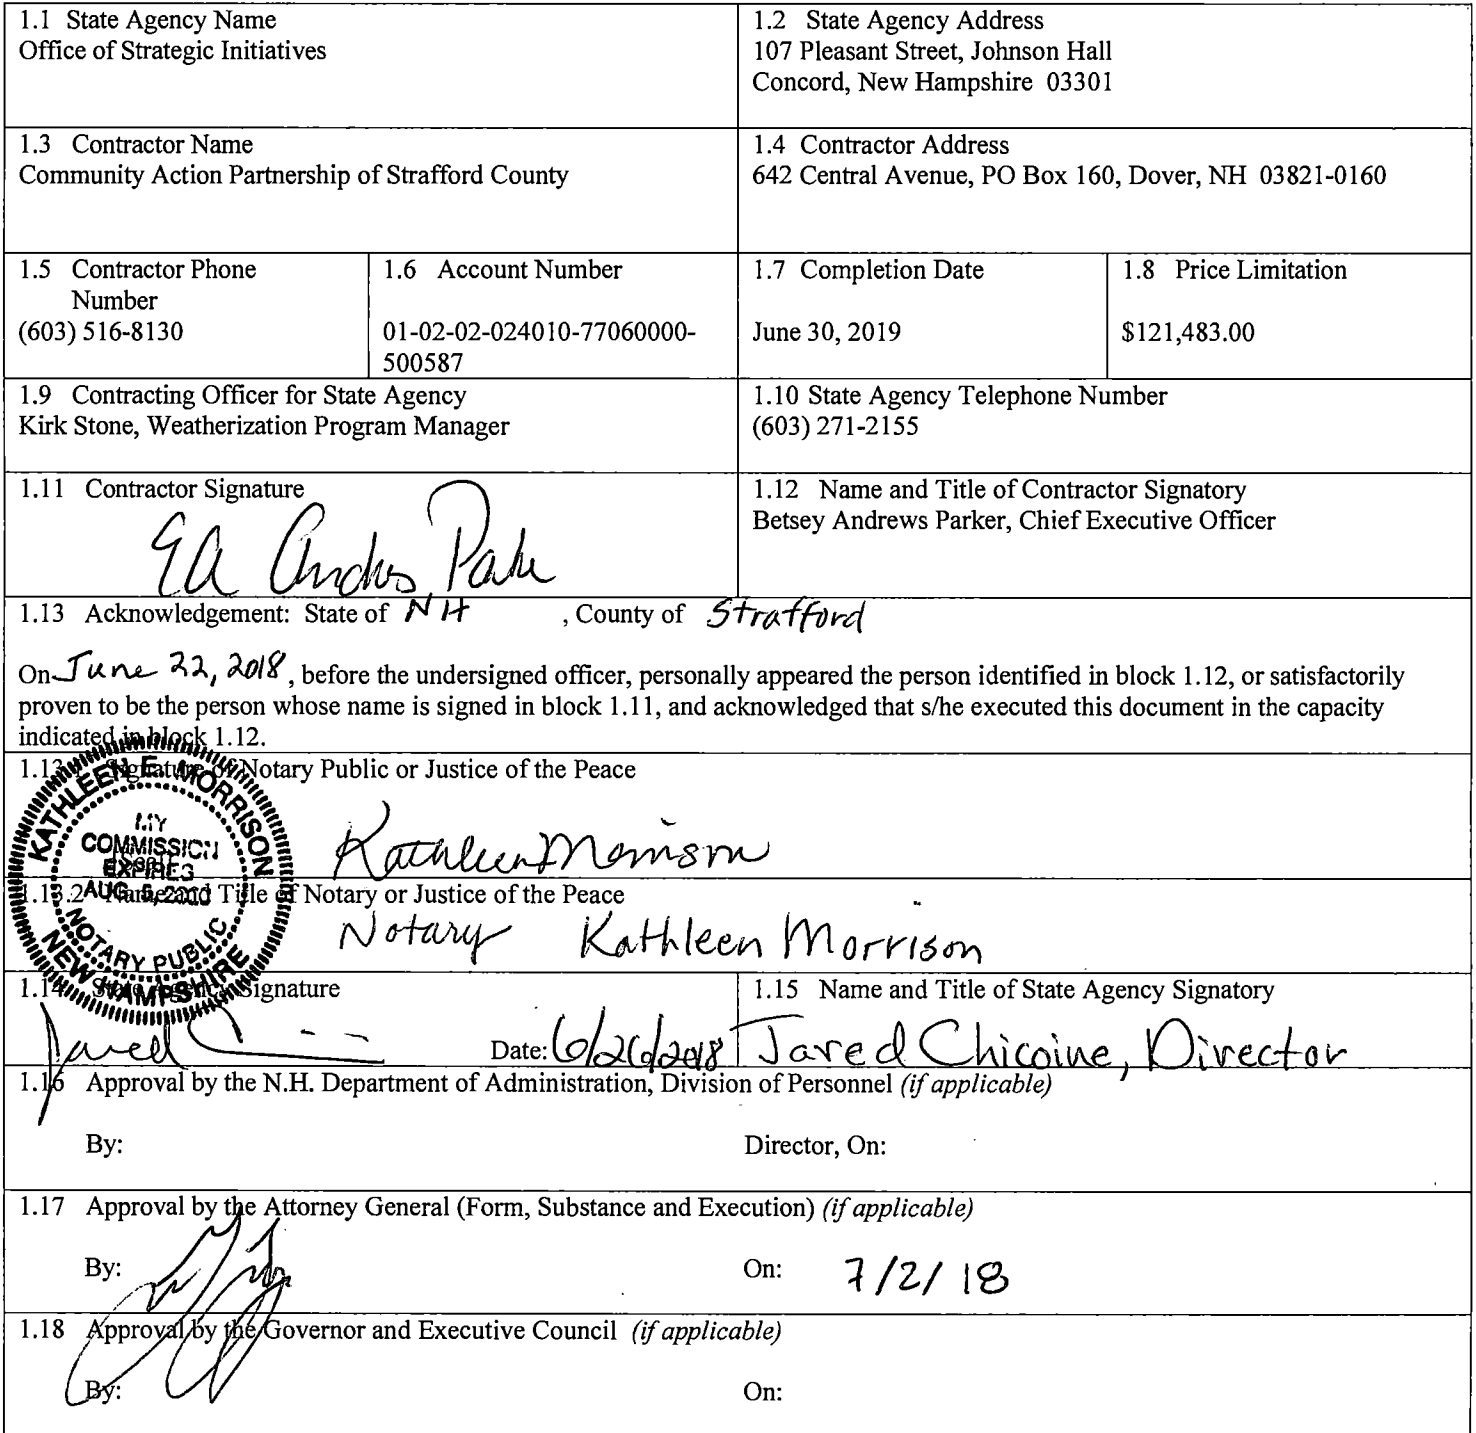 1.1 State Agency Name
Office of Strategic Initiatives
1.2 State Agency Address
107 Pleasant Street, Johnson Hall
Concord, New Hampshire 03301
1.3 Contractor Name
Community Action Partnership of Strafford County
1.4 Contractor Address
642 Central Avenue, PO Box 160, Dover, NH 03821-0160
1.5 Contractor Phone
Number
(603) 516-8130
1.6 Account Number
01-02-02-024010-77060000-
500587
1.7 Completion Date
June 30, 2019
1.8 Price Limitation
$121,483.00
1.9 Contracting Officer for State Agency
Kirk Stone, Weatherization Program Manager
1.10 State Agency Telephone Number
(603) 271-2155
1.11 Contractor Signature
1.12 Name and Title of Contractor Signatory
Betsey Andrews Parker, Chief Executive Officer
1.13 Acknowledgement: State of NH , County of Strafford
On June 22, 2018, before the undersigned officer, personally appeared the person identified in block 1.12, or satisfactorily
proven to be the person whose name is signed in block 1.11, and acknowledged that s/he executed this document in the capacity
indicated in block 1.12.
1.13.1 Signature of Notary Public or Justice of the Peace
KATHLEEN E. MORRISON
MY
COMMISSION
EXPIRES
AUG. 5,
NOTARY PUBLIC
NEW HAMPSHIRE
Kathleen Morrison
1.13.2 Name and Title of Notary or Justice of the Peace
Notary Kathleen Morrison
1.14 State Agency Signature
Jared
Date: 6/26/2018
1.15 Name and Title of State Agency Signatory
Jared Chicoine, Director
1.16 Approval by the N.H. Department of Administration, Division of Personnel (if applicable)
By:
Director, On:
1.17 Approval by the Attorney General (Form, Substance and Execution) (if applicable)
By:
On: 7/2/18
1.18 Approval by the Governor and Executive Council (if applicable)
By:
On: